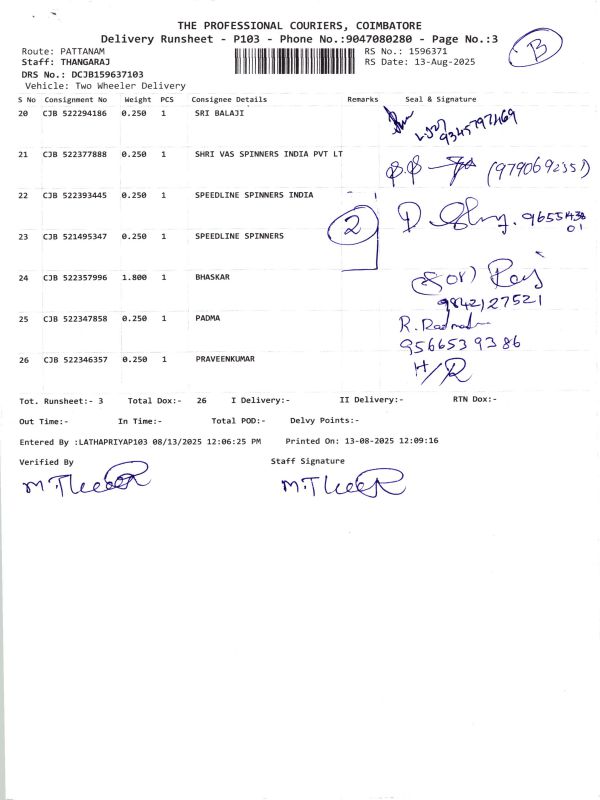 THE PROFESSIONAL COURIERS, COIMBATORE
Delivery Runsheet - P103 - Phone No.:9047080280 - Page No.:3
B
Route: PATTANAM RS No.: 1596371
Staff: THANGARAJ RS Date: 13-Aug-2025
DRS No.: DCJB159637103
Vehicle: Two Wheeler Delivery
S No Consignment No Weight PCS Consignee Details Remarks Seal & Signature
20 CJB 522294186 0.250 1 SRI BALAJI
9345797469
21 CJB 522377888 0.250 1 SHRI VAS SPINNERS INDIA PVT LT
(9790692351)
22 CJB 522393445 0.250 1 SPEEDLINE SPINNERS INDIA
2
23 CJB 521495347 0.250 1 SPEEDLINE SPINNERS
24 CJB 522357996 1.800 1 BHASKAR
9842127521
25 CJB 522347858 0.250 1 PADMA
9566539386
26 CJB 522346357 0.250 1 PRAVEENKUMAR
H/R
Tot. Runsheet:- 3 Total Dox:- 26 I Delivery:- II Delivery:- RTN Dox:-
Out Time:- In Time:- Total POD:- Delvy Points:-
Entered By :LATHAPRIYAP103 08/13/2025 12:06:25 PM Printed On: 13-08-2025 12:09:16
Verified By Staff Signature